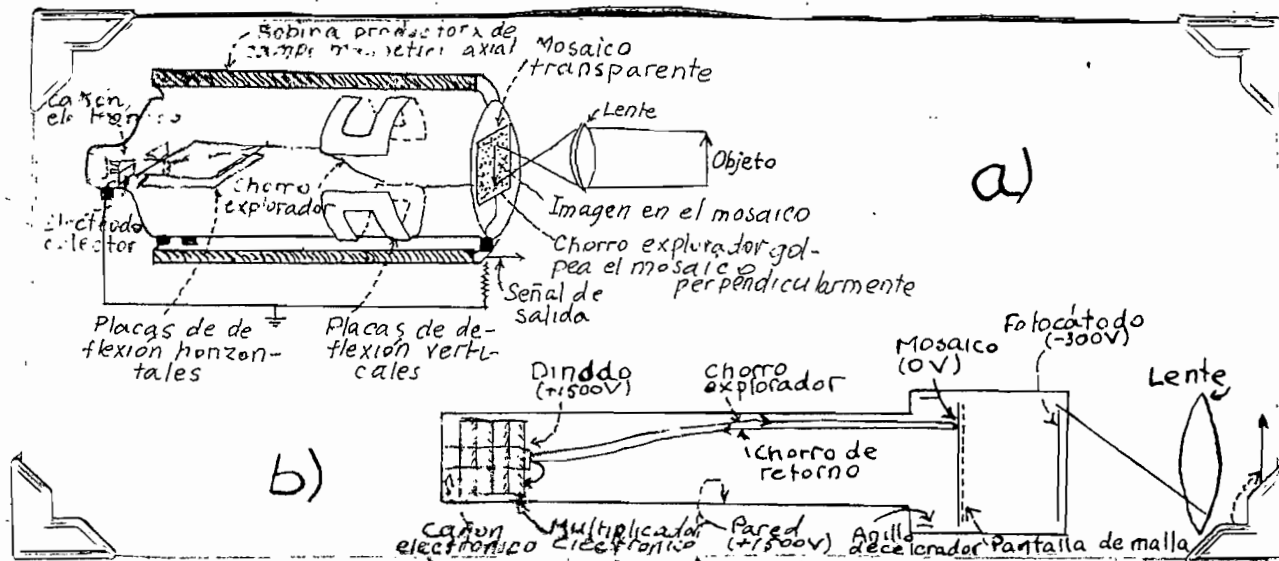 Bobina productora de
campo magnetico axial
Mosaico
transparente
Cañón
electrónico
Lente
Objeto
a)
Chorro
explorador
Imagen en el mosaico
Electrodo
colector
Chorro explorador gol-
pea el mosaico
perpendicularmente
Señal de
salida
Placas de de
flexión horizon-
tales
Placas de de-
flexión verti-
cales
Fotocátodo
(-300V)
Mosaico
(0V)
Lente
Dinodo
(+1500V)
Chorro
explorador
Chorro de
retorno
b)
Cañon
electrónico
Multiplicador
electrónico
Pared
(+1500V)
Anillo
decelerador
Pantalla de malla